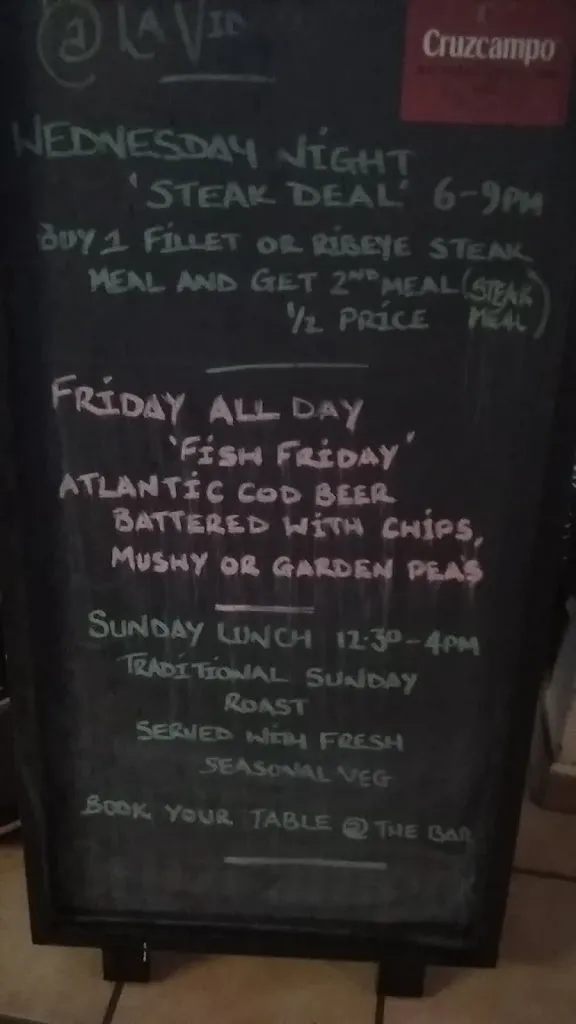 @ LA VID
Cruzcampo
WEDNESDAY NIGHT
'STEAK DEAL' 6-9PM
BUY 1 FILLET OR RIBEYE STEAK
MEAL AND GET 2ND MEAL (STEAK MEAL)
1/2 PRICE
FRIDAY ALL DAY
'FISH FRIDAY'
ATLANTIC COD BEER
BATTERED WITH CHIPS,
MUSHY OR GARDEN PEAS
SUNDAY LUNCH 12.30-4PM
TRADITIONAL SUNDAY
ROAST
SERVED WITH FRESH
SEASONAL VEG
BOOK YOUR TABLE @ THE BAR